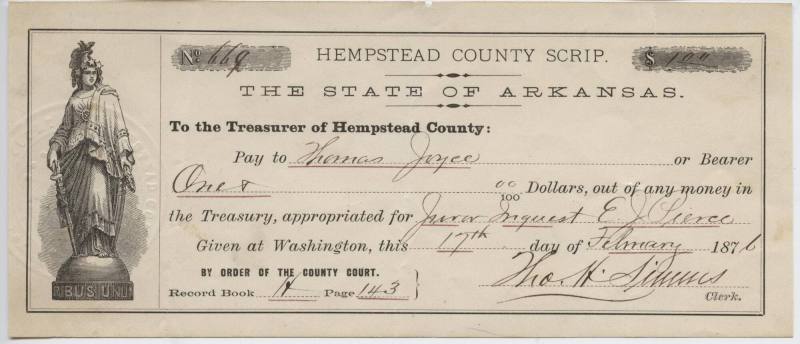 No 669 HEMPSTEAD COUNTY SCRIP. $ 1.00
THE STATE OF ARKANSAS.
To the Treasurer of Hempstead County:
Pay to Thomas Joyce or Bearer
One & 00/100 Dollars, out of any money in
the Treasury, appropriated for Juror Inquest E J Pierce
Given at Washington, this 17th day of February 1876
BY ORDER OF THE COUNTY COURT.
Record Book A Page 143
Tho. H. Simms
Clerk.
RIBUS UNU